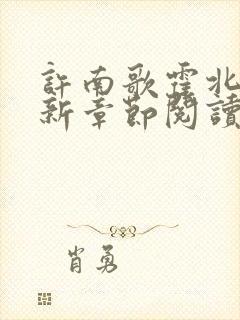 許南歌霍北
新章節閱讀
肖勇